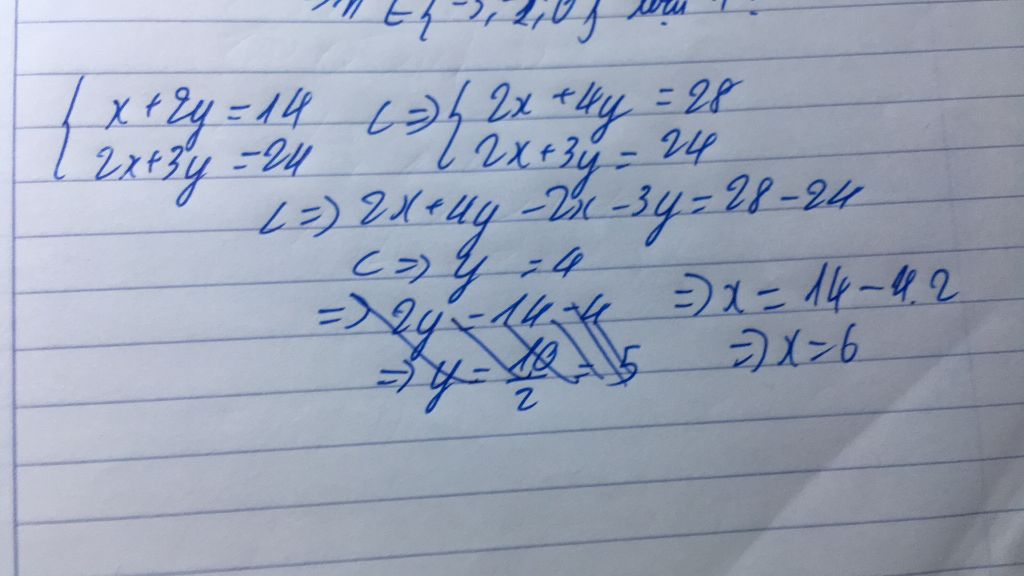 x+2y=14 <=> 2x+4y=28
2x+3y=24 2x+3y=24
<=> 2x+4y-2x-3y=28-24
<=> y=4
=> 2y=14-4 => x=14-4.2
=> y=10/2=5 => x=6